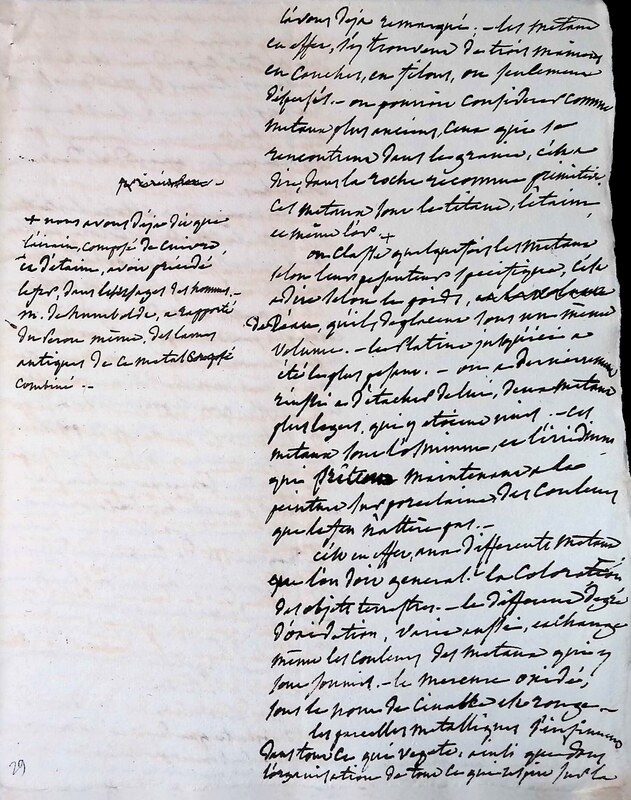 l'avons déja remarqué. - les metaux
en effet, s'y trouvent de trois manieres
en couches, en filons, ou seulement
dispersés. - on pourroit considerer comme
metaux plus anciens, ceux que se
rencontrent dans le granit, c'est a
dire, dans la roche reconnue primitive.
ces metaux sont le titane, l'étain,
et même l'or +
on classe quelquefois les metaux
selon leurs pesanteurs specifique, c'est
a dire selon le poids,
de l'eau, qu'ils deplacent sous un même
volume. - le Platine jusqu'ici a
été le plus pesant. - on a dernierement
réussi a détacher de lui, deux metaux
plus legers, qui y etoient unis. - ces
metaux sont l'osmium, et l'iridium
qui prêtent maintenant a la
peinture sur porcelaine des couleurs
que le feu n'altère pas. -
c'est en effet, aux differents metaux
que l'on doit general. t la coloration
des objets terrestres. - le different degré
d'oxidation, varie aussi, et change
même les couleurs des metaux qui y
sont soumis. - le mercure oxidé,
sous le nom de cinabre est rouge -
les parcelles metalliques s'insinuent
dans tout ce qui vegete, ainsi que dans
l'organisation de tout ce qui respire sur la
+ nous avons déja dit que
l'airain, composé de cuivre,
et d'étain, avoit précédé
le fer, dans les usages des hommes. -
m. de humboldt, a rapporté
du Perou même, des lames
antiques de ce metal
combiné. -
29